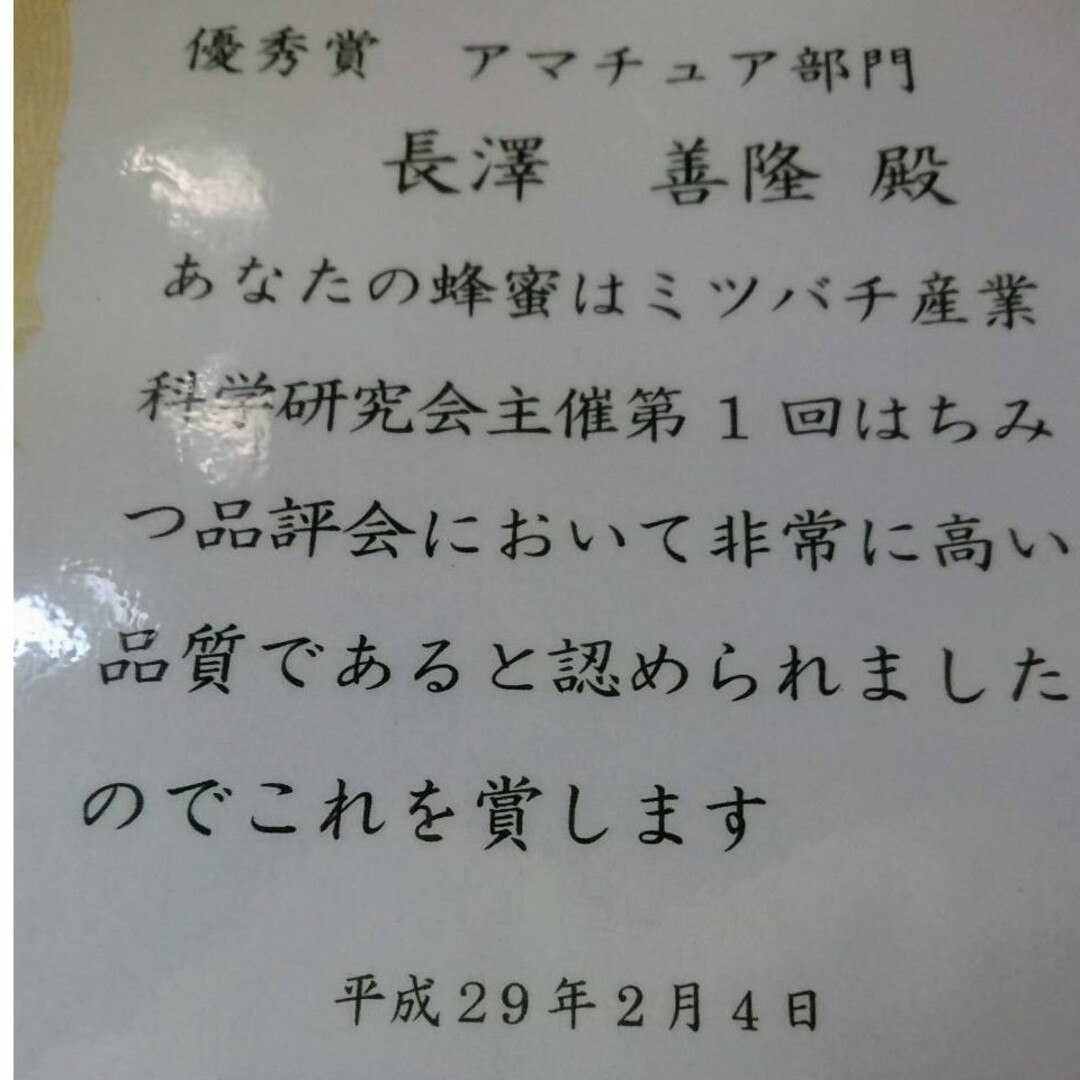 優秀賞　アマチュア部門
長澤　善隆 殿
あなたの蜂蜜はミツバチ産業
科学研究会主催第１回はちみ
つ品評会において非常に高い
品質であると認められました
のでこれを賞します
平成２９年２月４日